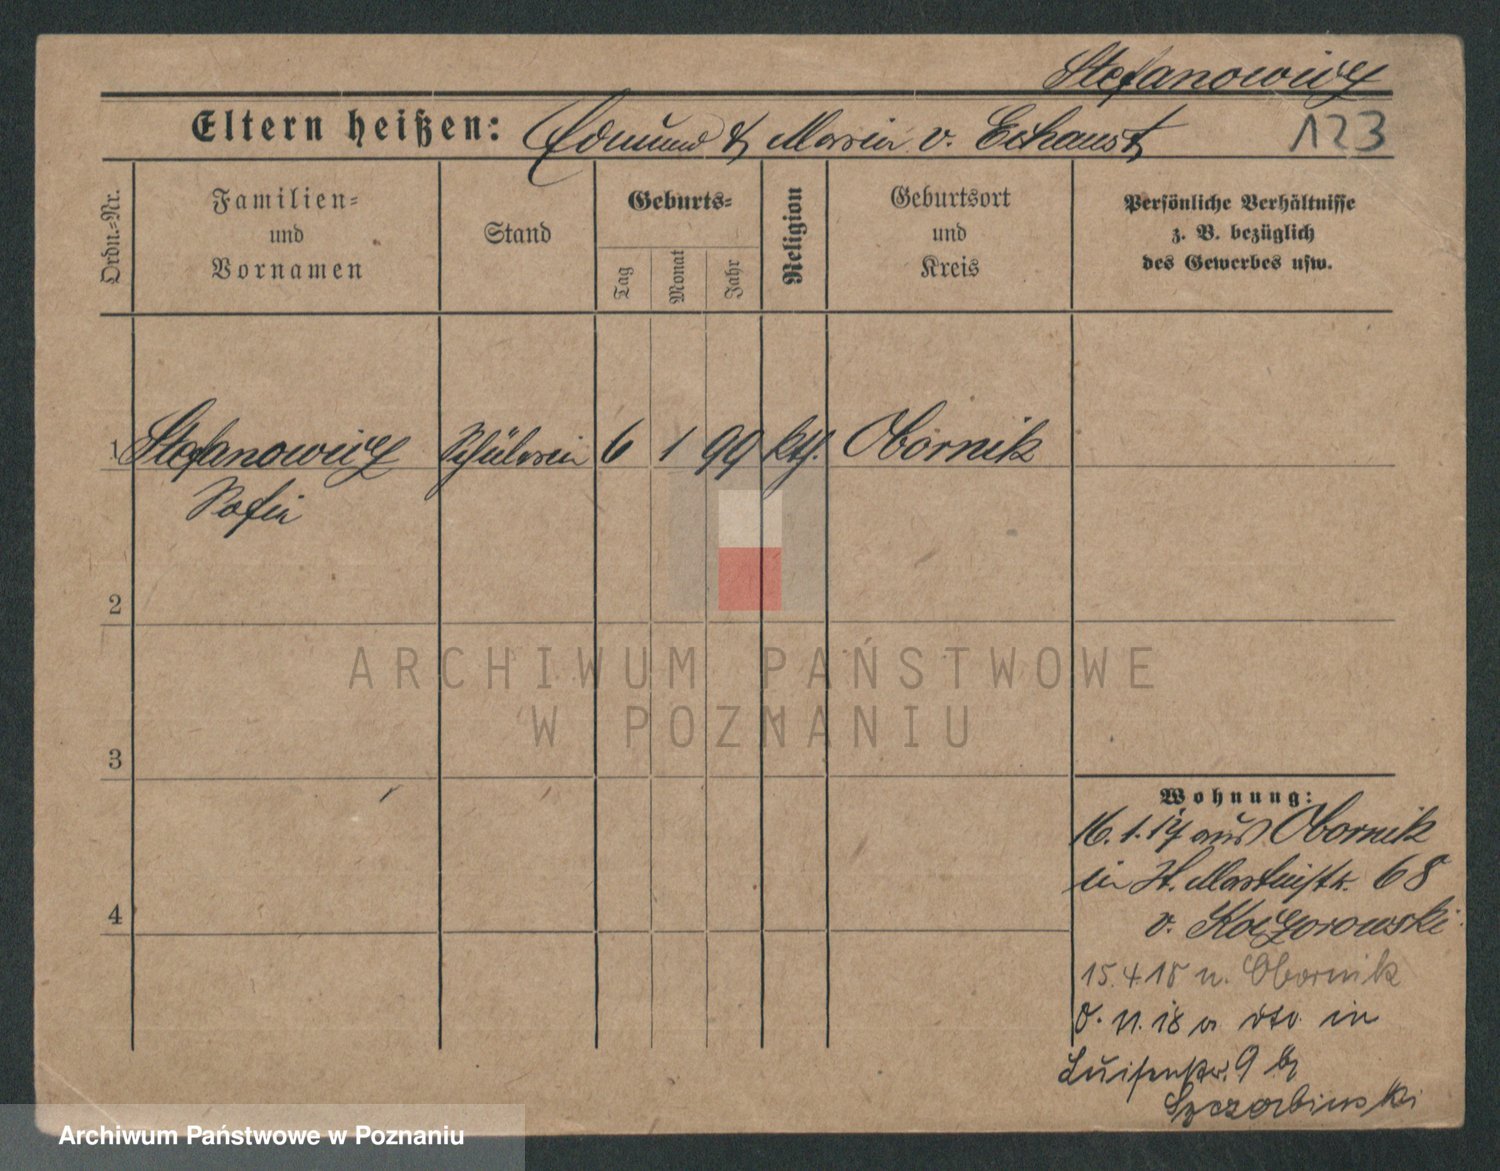 Stefanowicz
Eltern heißen: Edmund & Maria v. Echaust
123
Ordn.-Nr.
Familien-
und
Vornamen
Stand
Geburts-
Tag
Monat
Jahr
Religion
Geburtsort
und
Kreis
Persönliche Verhältnisse
z. B. bezüglich
des Gewerbes usw.
1 Stefanowicz Schülerin 6 1 99 kth. Obornik
Sofia
2
3
4
Wohnung:
16. 1. 17 aus Obornik
in St. Martinstr. 68
v.
15. 4. 18 n. Obornik
8. 11. 18 v. dto. in
Luisenstr. 9 b
Szczerbinski
ARCHIWUM PAŃSTWOWE
W POZNANIU
Archiwum Państwowe w Poznaniu